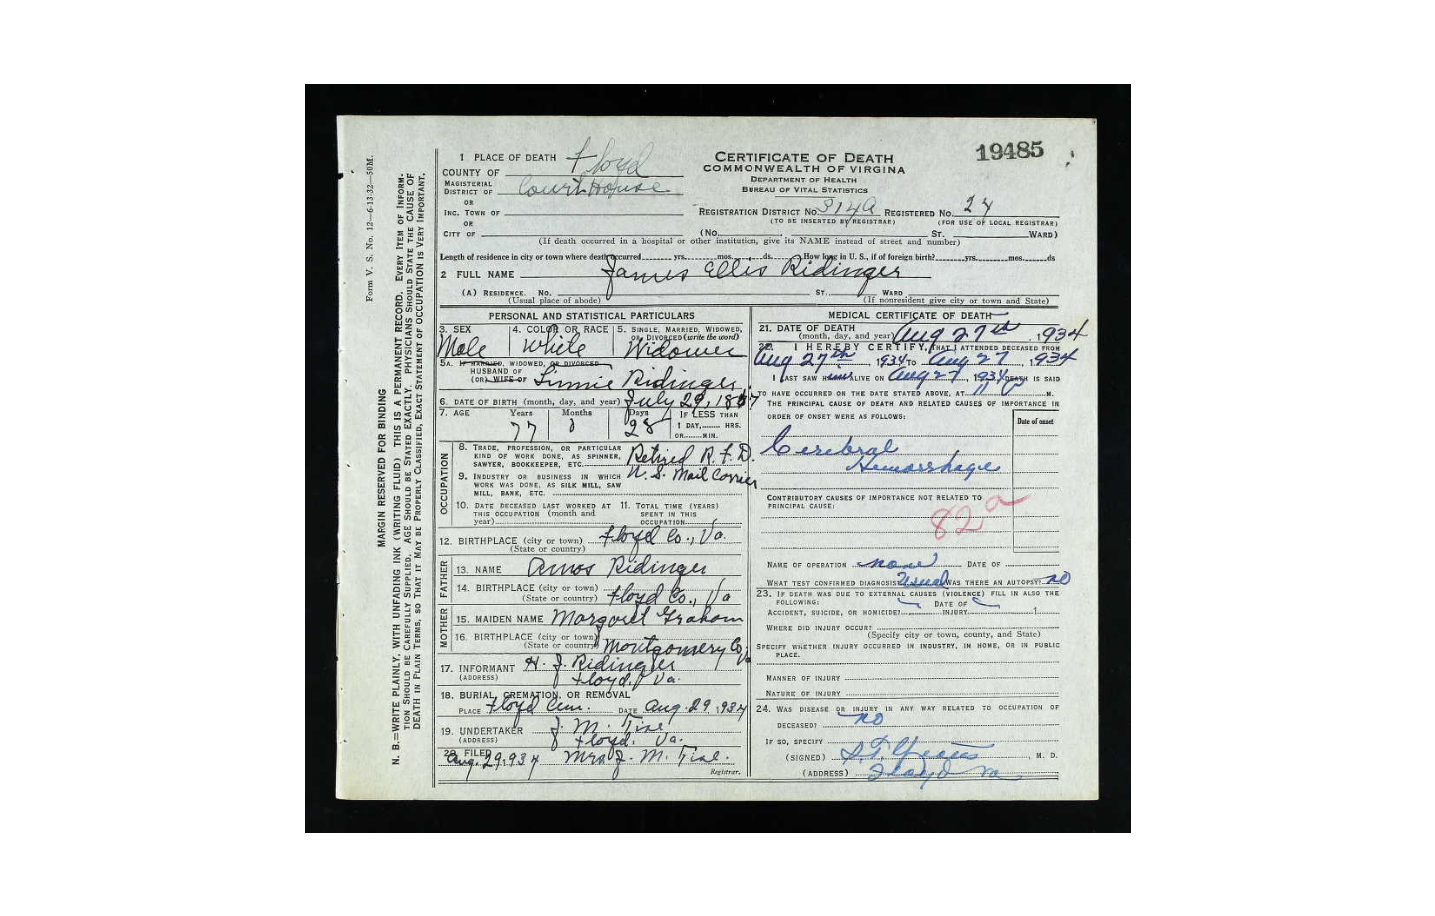 Form V. S. No. 12—6-13-32—50M.
MARGIN RESERVED FOR BINDING
N. B.—WRITE PLAINLY, WITH UNFADING INK (WRITING FLUID). THIS IS A PERMANENT RECORD. EVERY ITEM OF INFORM-
TION SHOULD BE CAREFULLY SUPPLIED. AGE SHOULD BE STATED EXACTLY. PHYSICIANS SHOULD STATE THE CAUSE OF
DEATH IN PLAIN TERMS, SO THAT IT MAY BE PROPERLY CLASSIFIED. EXACT STATEMENT OF OCCUPATION IS VERY IMPORTANT.
1 PLACE OF DEATH
COUNTY OF Floyd
MAGISTERIAL
DISTRICT OF Court House
OR
INC. TOWN OF
OR
CITY OF
CERTIFICATE OF DEATH
COMMONWEALTH OF VIRGINA
DEPARTMENT OF HEALTH
BUREAU OF VITAL STATISTICS
19485
REGISTRATION DISTRICT No. 314A REGISTERED No. 24
(TO BE INSERTED BY REGISTRAR) (FOR USE OF LOCAL REGISTRAR)
(No. ST. WARD)
(If death occurred in a hospital or other institution, give its NAME instead of street and number)
Length of residence in city or town where death occurred yrs. mos. ds. How long in U. S., if of foreign birth? yrs. mos. ds
2 FULL NAME James Ellis Ridinger
(A) RESIDENCE. No. ST. WARD
(Usual place of abode) (If nonresident give city or town and State)
PERSONAL AND STATISTICAL PARTICULARS
3. SEX 4. COLOR OR RACE 5. SINGLE, MARRIED, WIDOWED,
OR DIVORCED (write the word)
Male White Widower
5A. IF MARRIED, WIDOWED, OR DIVORCED
HUSBAND OF
(OR) WIFE OF Linnie Ridinger
6. DATE OF BIRTH (month, day, and year) July 29, 1857
7. AGE Years Months Days IF LESS THAN
1 DAY, HRS.
OR MIN.
77 0 28
OCCUPATION
8. TRADE, PROFESSION, OR PARTICULAR
KIND OF WORK DONE, AS SPINNER,
SAWYER, BOOKKEEPER, ETC. Retired R. F. D.
9. INDUSTRY OR BUSINESS IN WHICH
WORK WAS DONE, AS SILK MILL, SAW
MILL, BANK, ETC. U. S. Mail Carrier
10. DATE DECEASED LAST WORKED AT
THIS OCCUPATION (month and
year)
11. TOTAL TIME (YEARS)
SPENT IN THIS
OCCUPATION
12. BIRTHPLACE (city or town) Floyd Co., Va.
(State or country)
FATHER
13. NAME Amos Ridinger
14. BIRTHPLACE (city or town)
(State or country) Floyd Co., Va
MOTHER
15. MAIDEN NAME Margaret Graham
16. BIRTHPLACE (city or town)
(State or country) Montgomery Co Va
17. INFORMANT H. J. Ridinger
(ADDRESS) Floyd, Va.
18. BURIAL, CREMATION, OR REMOVAL
PLACE Floyd Cem. DATE Aug. 29, 1934
19. UNDERTAKER J. M.
(ADDRESS) Floyd, Va.
20. FILED
Aug. 29, 1934 Mrs J. M.
Registrar.
MEDICAL CERTIFICATE OF DEATH
21. DATE OF DEATH
(month, day, and year) Aug 27th, 1934
22. I HEREBY CERTIFY, THAT I ATTENDED DECEASED FROM
Aug 27th, 1934 TO Aug 27, 1934
I LAST SAW Him ALIVE ON Aug 27, 1934 DEATH IS SAID
TO HAVE OCCURRED ON THE DATE STATED ABOVE, AT 11 P M.
THE PRINCIPAL CAUSE OF DEATH AND RELATED CAUSES OF IMPORTANCE IN
ORDER OF ONSET WERE AS FOLLOWS:
Date of onset
Cerebral
Hemorrhage
CONTRIBUTORY CAUSES OF IMPORTANCE NOT RELATED TO
PRINCIPAL CAUSE:
82a
NAME OF OPERATION none DATE OF
WHAT TEST CONFIRMED DIAGNOSIS? Usual WAS THERE AN AUTOPSY? no
23. IF DEATH WAS DUE TO EXTERNAL CAUSES (VIOLENCE) FILL IN ALSO THE
FOLLOWING:
ACCIDENT, SUICIDE, OR HOMICIDE? DATE OF INJURY
WHERE DID INJURY OCCUR?
(Specify city or town, county, and State)
SPECIFY WHETHER INJURY OCCURRED IN INDUSTRY, IN HOME, OR IN PUBLIC
PLACE.
MANNER OF INJURY
NATURE OF INJURY
24. WAS DISEASE OR INJURY IN ANY WAY RELATED TO OCCUPATION OF
DECEASED? no
IF SO, SPECIFY
(SIGNED) M. D.
(ADDRESS) Floyd Va